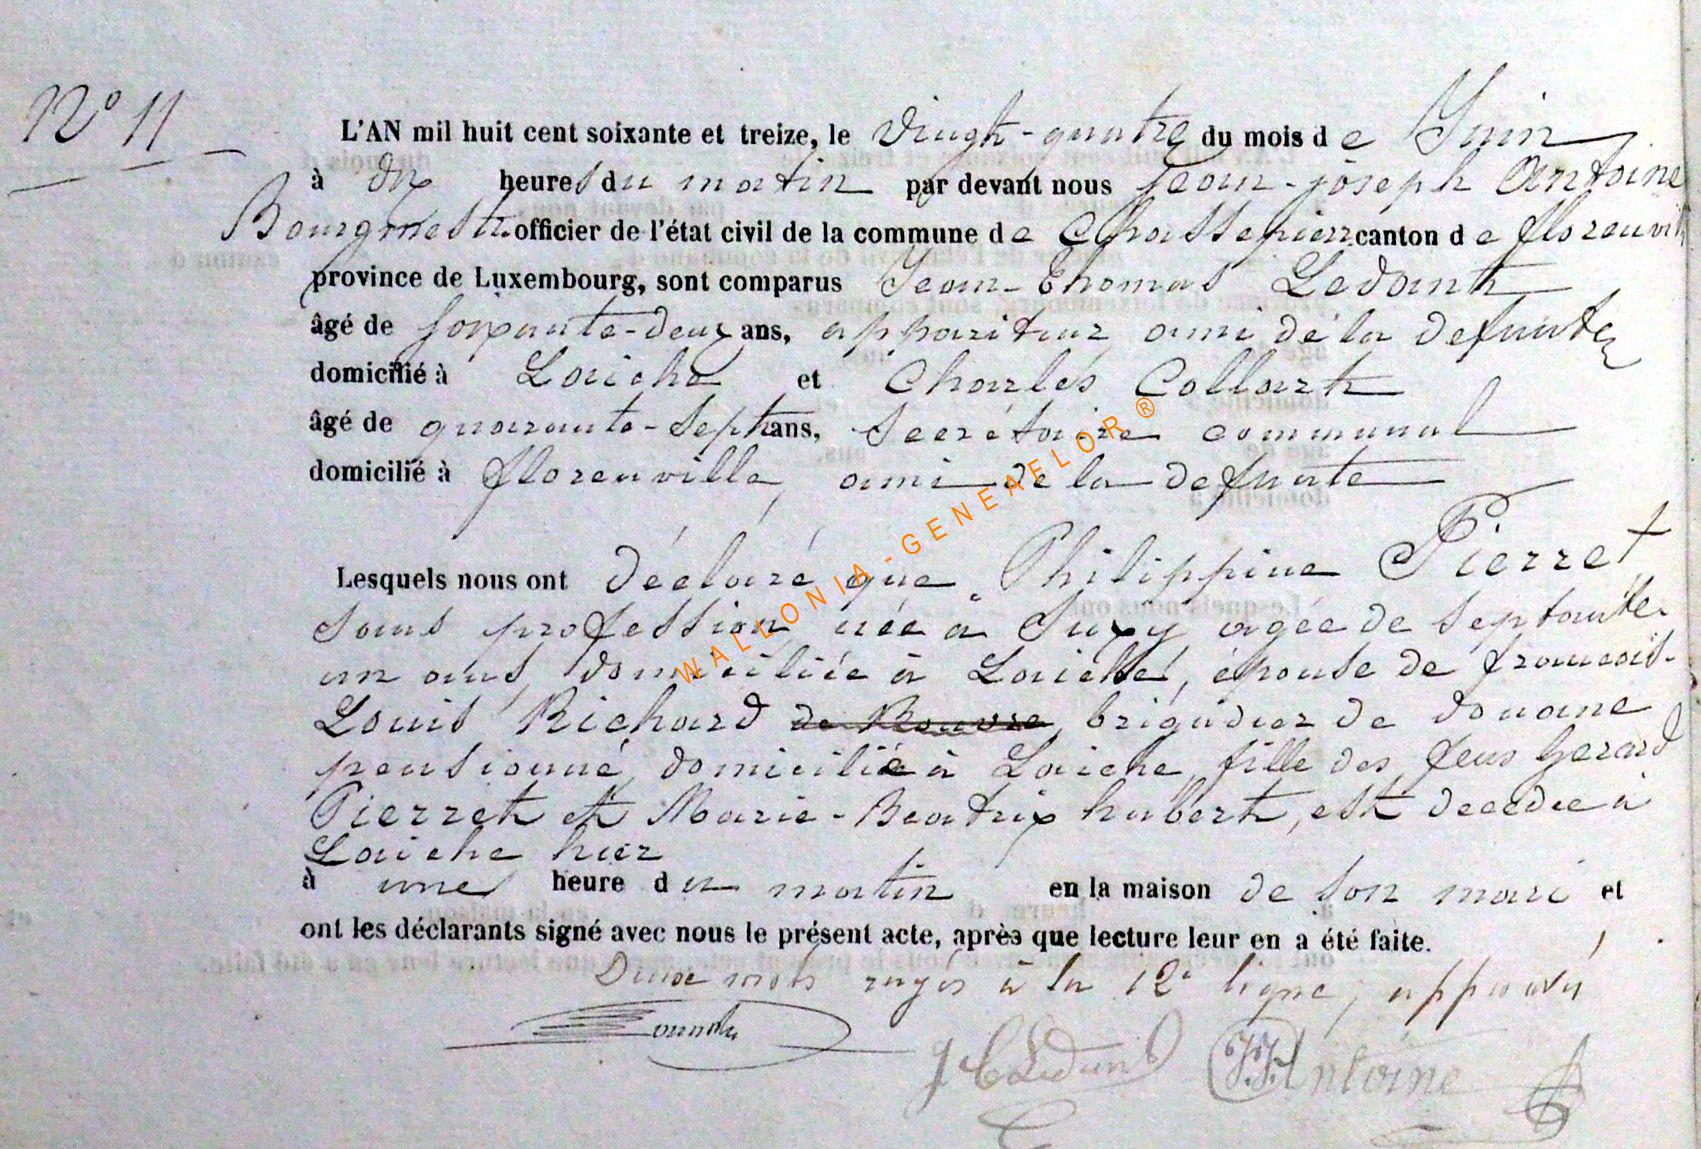 N° 11
L'AN mil huit cent soixante et treize, le vingt-quatre du mois de Juin
à dix heures du matin par devant nous Jean-joseph Antoine
Bourgmestre officier de l'état civil de la commune de Chassepierre canton de florenville
province de Luxembourg, sont comparus Jean-Thomas Ledant
âgé de soixante-deux ans, appariteur ami de la defunte
domicilié à Laiche et Charles Collart
âgé de quarante-sept ans, secrétaire communal
domicilié à florenville, ami de la defunte
Lesquels nous ont déclaré que Philippine Pierret
sans profession née à Suxy agée de septante-
un ans, domiciliée à Laiche, épouse de francois-
Louis Richard de Rouvre, brigadier de douane
pensionné, domicilié à Laiche, fille des feus Gerard
Pierret et Marie-Beatrix hubert, est decedee à
Laiche hier
à une heure du matin en la maison de son mari et
ont les déclarants signé avec nous le présent acte, après que lecture leur en a été faite.
Deux mots rayés à la 12e ligne, approuvé
J T Ledant J.J. Antoine
WALLONIA-GENEAFLOR ®